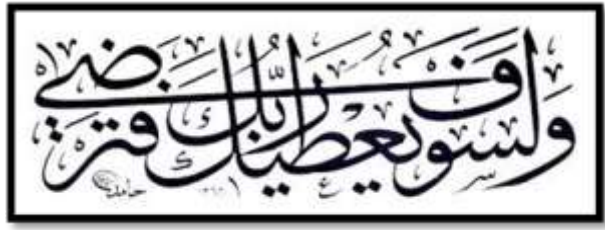 ولسوف يعطيك ربك فترضى
حامد